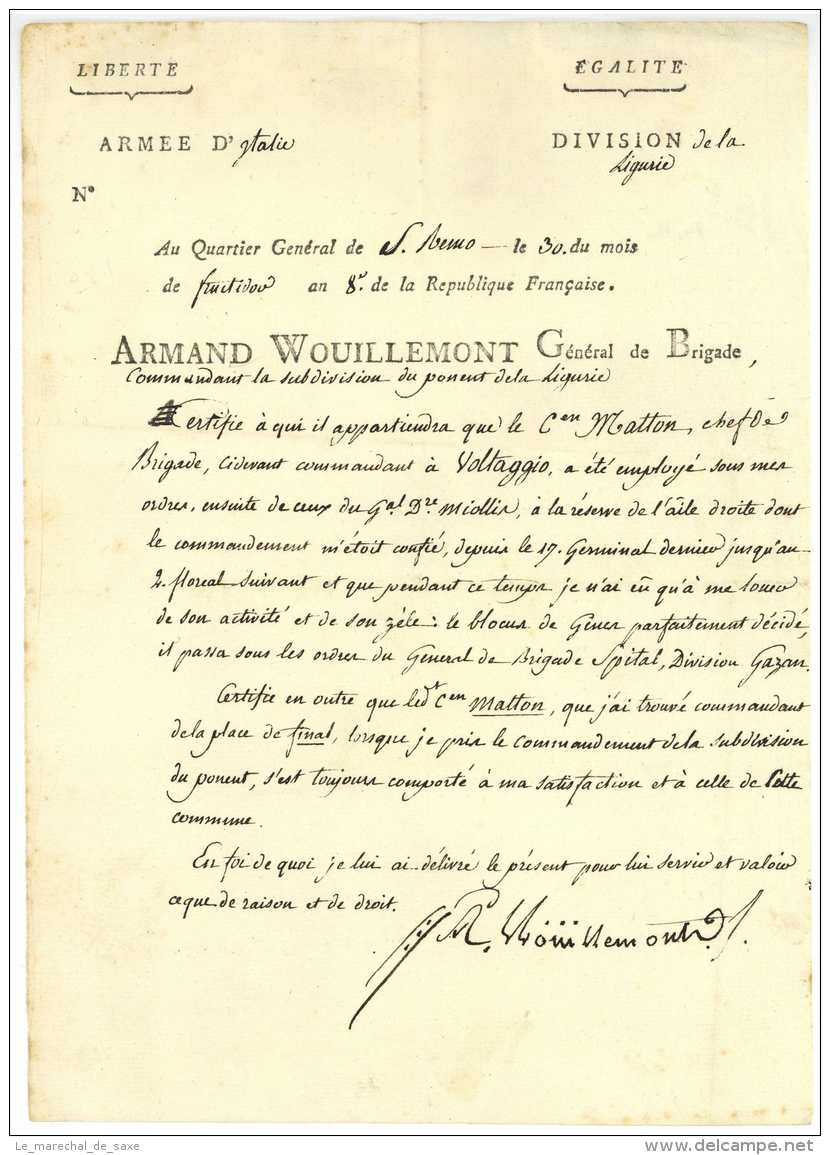 LIBERTÉ ÉGALITÉ
ARMEE D'Italie DIVISION de la
Ligurie
N°
Au Quartier Genéral de S. Remo — le 30. du mois
de fructidor an 8e. de la Republique Française.
ARMAND WOUILLEMONT Général de Brigade,
Commandant la subdivision du ponent dela Ligurie
Certifie à qui il appartiendra que le Cen Matton, chef de
Brigade, cidevant commandant à Voltaggio, a été employé sous mes
ordres, ensuite de ceux du Gal. Dre. Miollis, à la réserve de l'aîle droite dont
le commandement m'étoit confié, depuis le 17. Germinal dernier jusqu'au
2. floreal suivant et que pendant ce temps je n'ai eû qu'à me louer
de son activité et de son zèle: le blocus de Gènes parfaitement décidé,
il passa sous les ordres du Géneral de Brigade Spital, Division Gazan.
Certifie en outre que ledt Cen Matton, que j'ai trouvé commandant
dela place de final, lorsque je pris le commandement dela subdivision
du ponent, s'est toujours comporté à ma satisfaction et à celle de Cette
commune.
En foi de quoi je lui ai délivré le présent pour lui servir et valoir
ceque de raison et de droit.
Ad. Woüillemont
Le_marechal_de_saxe
www.delcampe.net